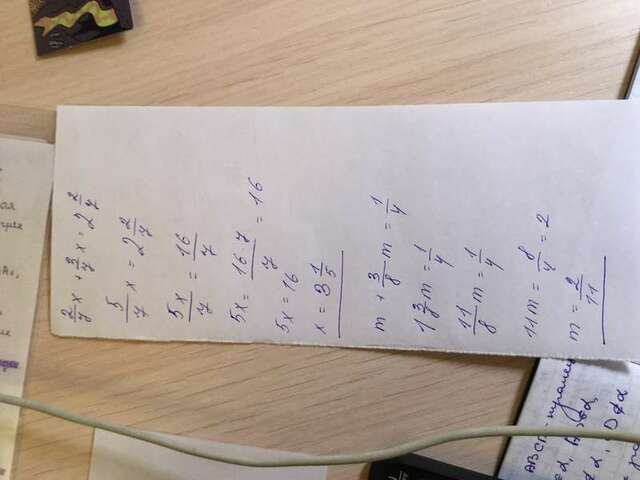 2/7 x + 3/7 x = 2 2/7
5/7 x = 2 2/7
5x/7 = 16/7
5x = 16·7/7 = 16
5x = 16
x = 3 1/5
m + 3/8 m = 1/4
1 3/8 m = 1/4
11/8 m = 1/4
11m = 8/4 = 2
m = 2/11
ABCD